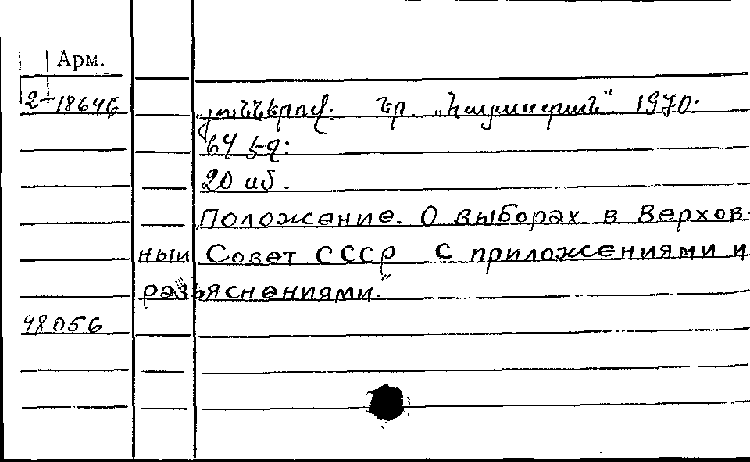 Арм.
2-18646 յուններով. Եր. „Հայաստան" 1970.
64 էջ:
20 սմ.
Положение. О выборах в Верхов-
ный Совет СССР С приложениями и
разъяснениями."
48056